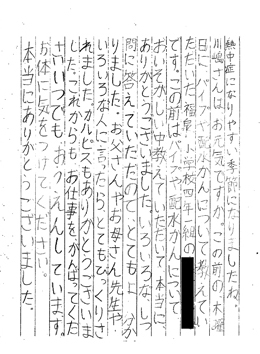 熱中症になりやすい季節になりましたね。
川嶋さんはお元気ですか。この前の木曜
日にパイプや配水かんについて教えてい
ただいた福島小学校四年一組の
です。この前はパイプや配水かんのことを
おいそがしい中教えていただいて本当に
ありがとうございました。いろいろなしつ
問に答えていただいたので、とてもよく分か
りました。お父さんやお母さん、先生や、
いろいろな人に言ったら、とてもびっくりさ
れました。カルピスもありがとうございま
した。これからも、お仕事をがんばってくだ
さい。いつでも、おうえんしています。
お体に気をつけてください。
本当にありがとうございました。